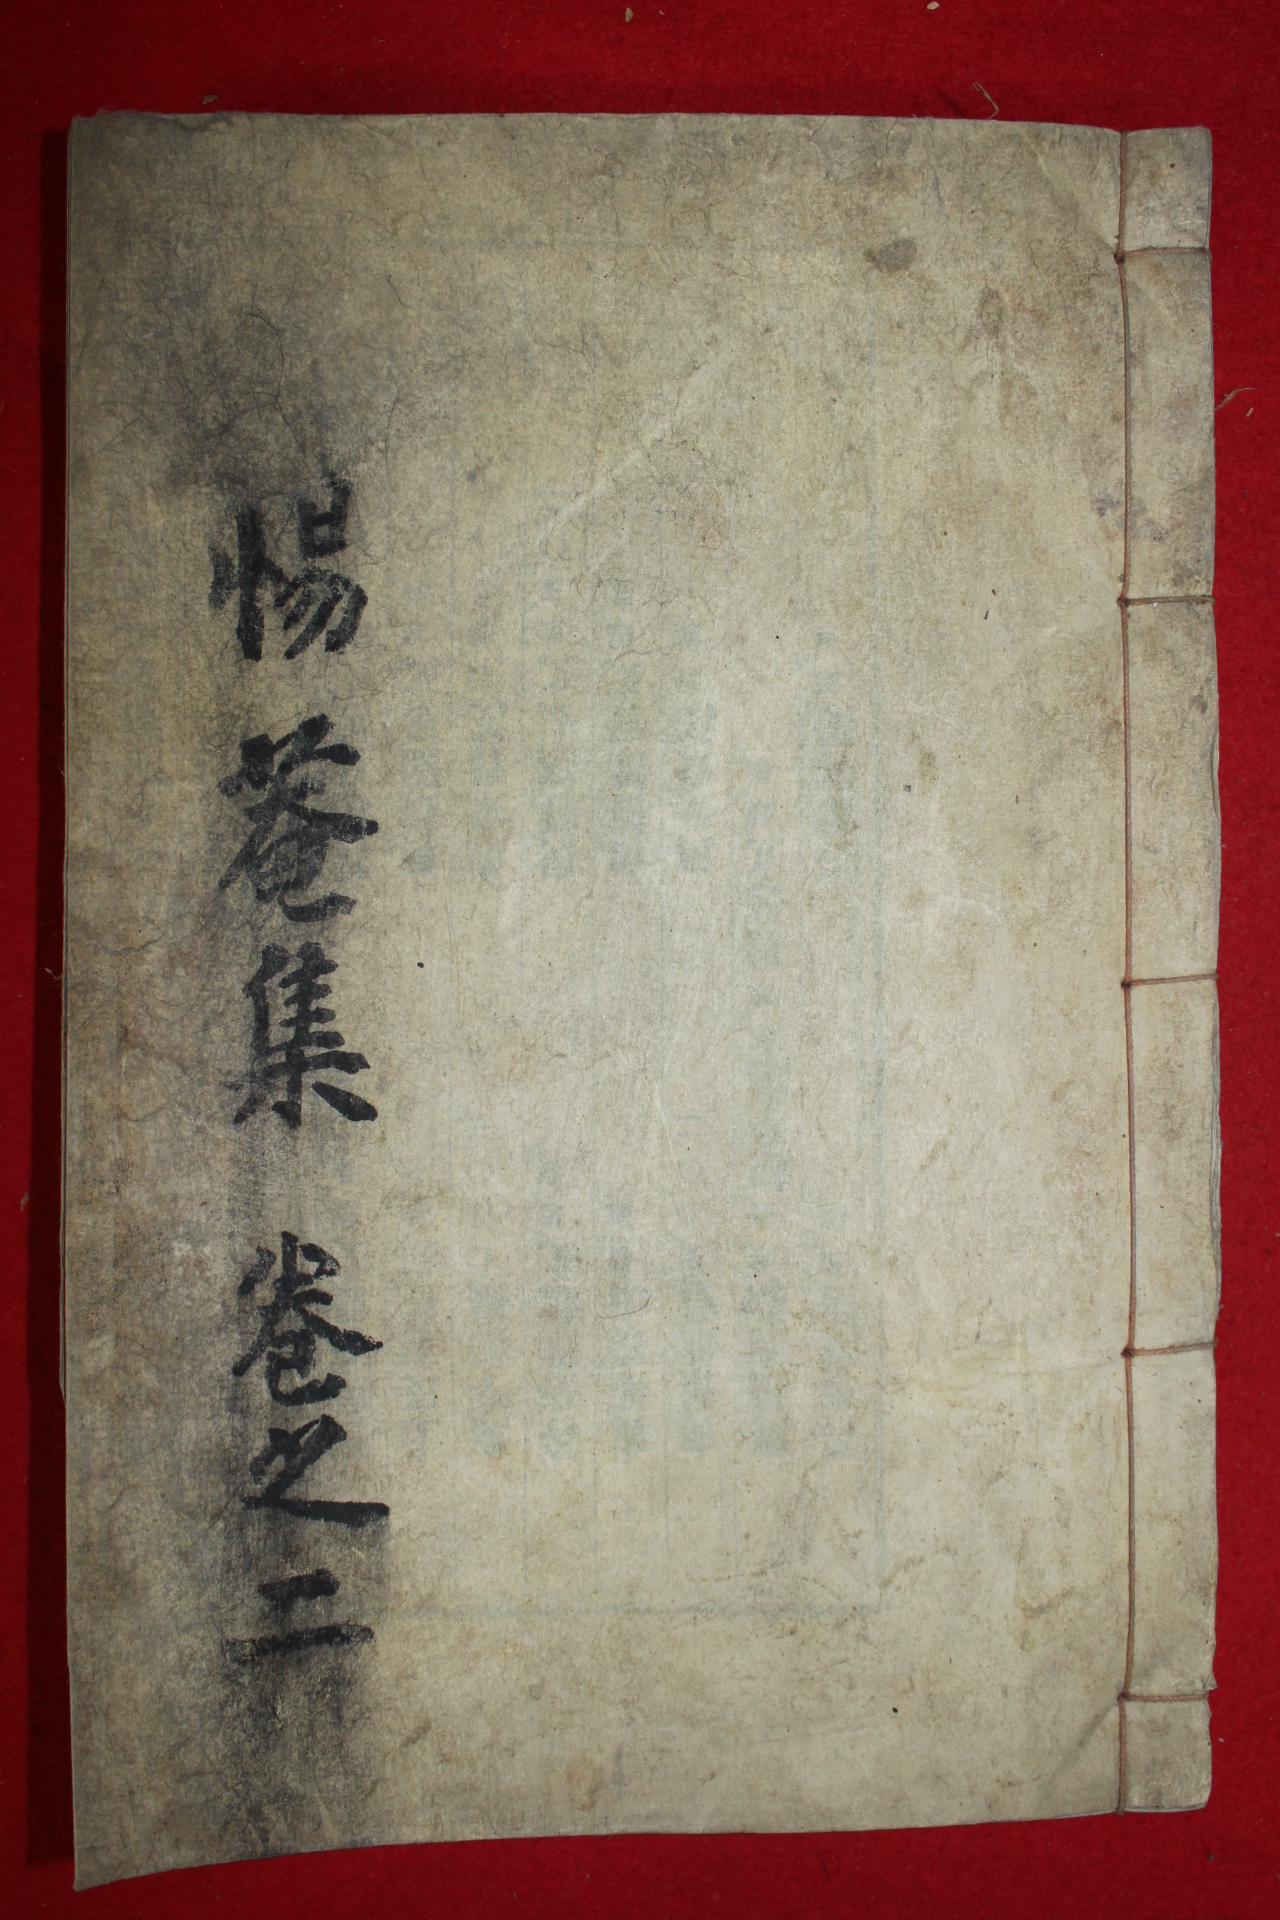 惕菴集 卷之二